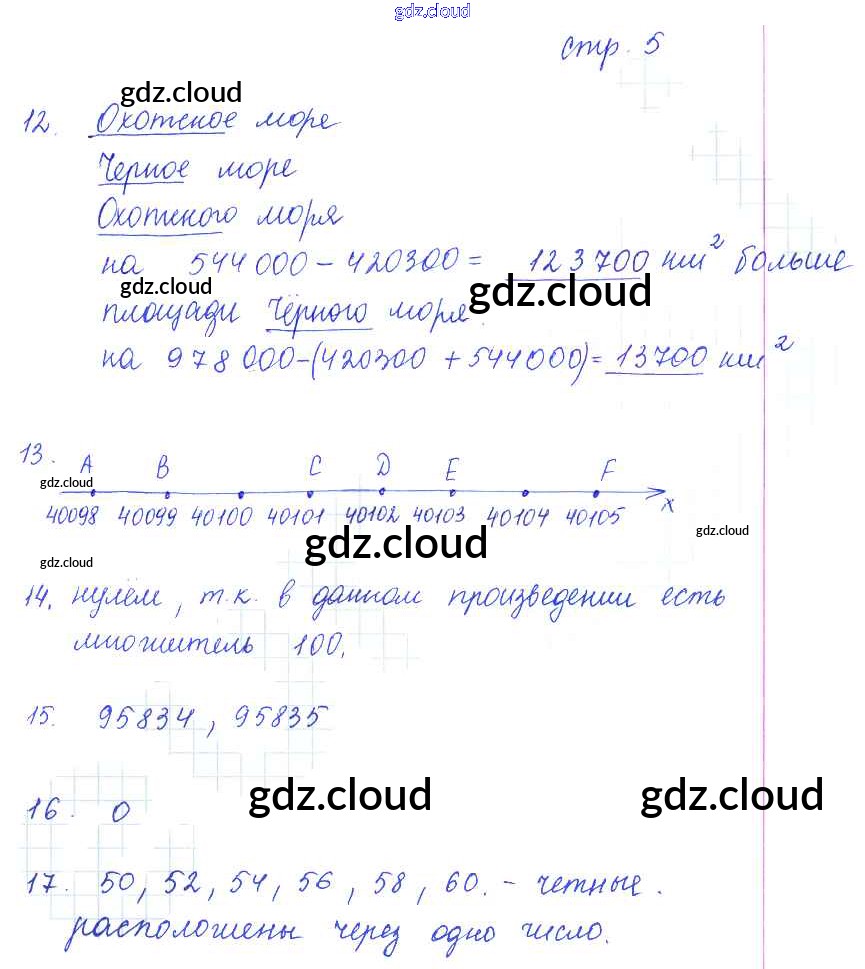 gdz.cloud
стр. 5
gdz.cloud
12. Охотское море
Черное море
Охотского моря
на 544000 – 420300 = 123700 км² больше
gdz.cloud
gdz.cloud
площади Чёрного моря.
на 978000 – (420300 + 544000) = 13700 км²
13. A B C D E F
gdz.cloud
x
40098 40099 40100 40101 40102 40103 40104 40105
gdz.cloud
gdz.cloud
gdz.cloud
14. нулём, т.к. в данном произведении есть
множитель 100.
15. 95834, 95835
gdz.cloud
gdz.cloud
16. 0
17. 50, 52, 54, 56, 58, 60. - четные.
расположены через одно число.